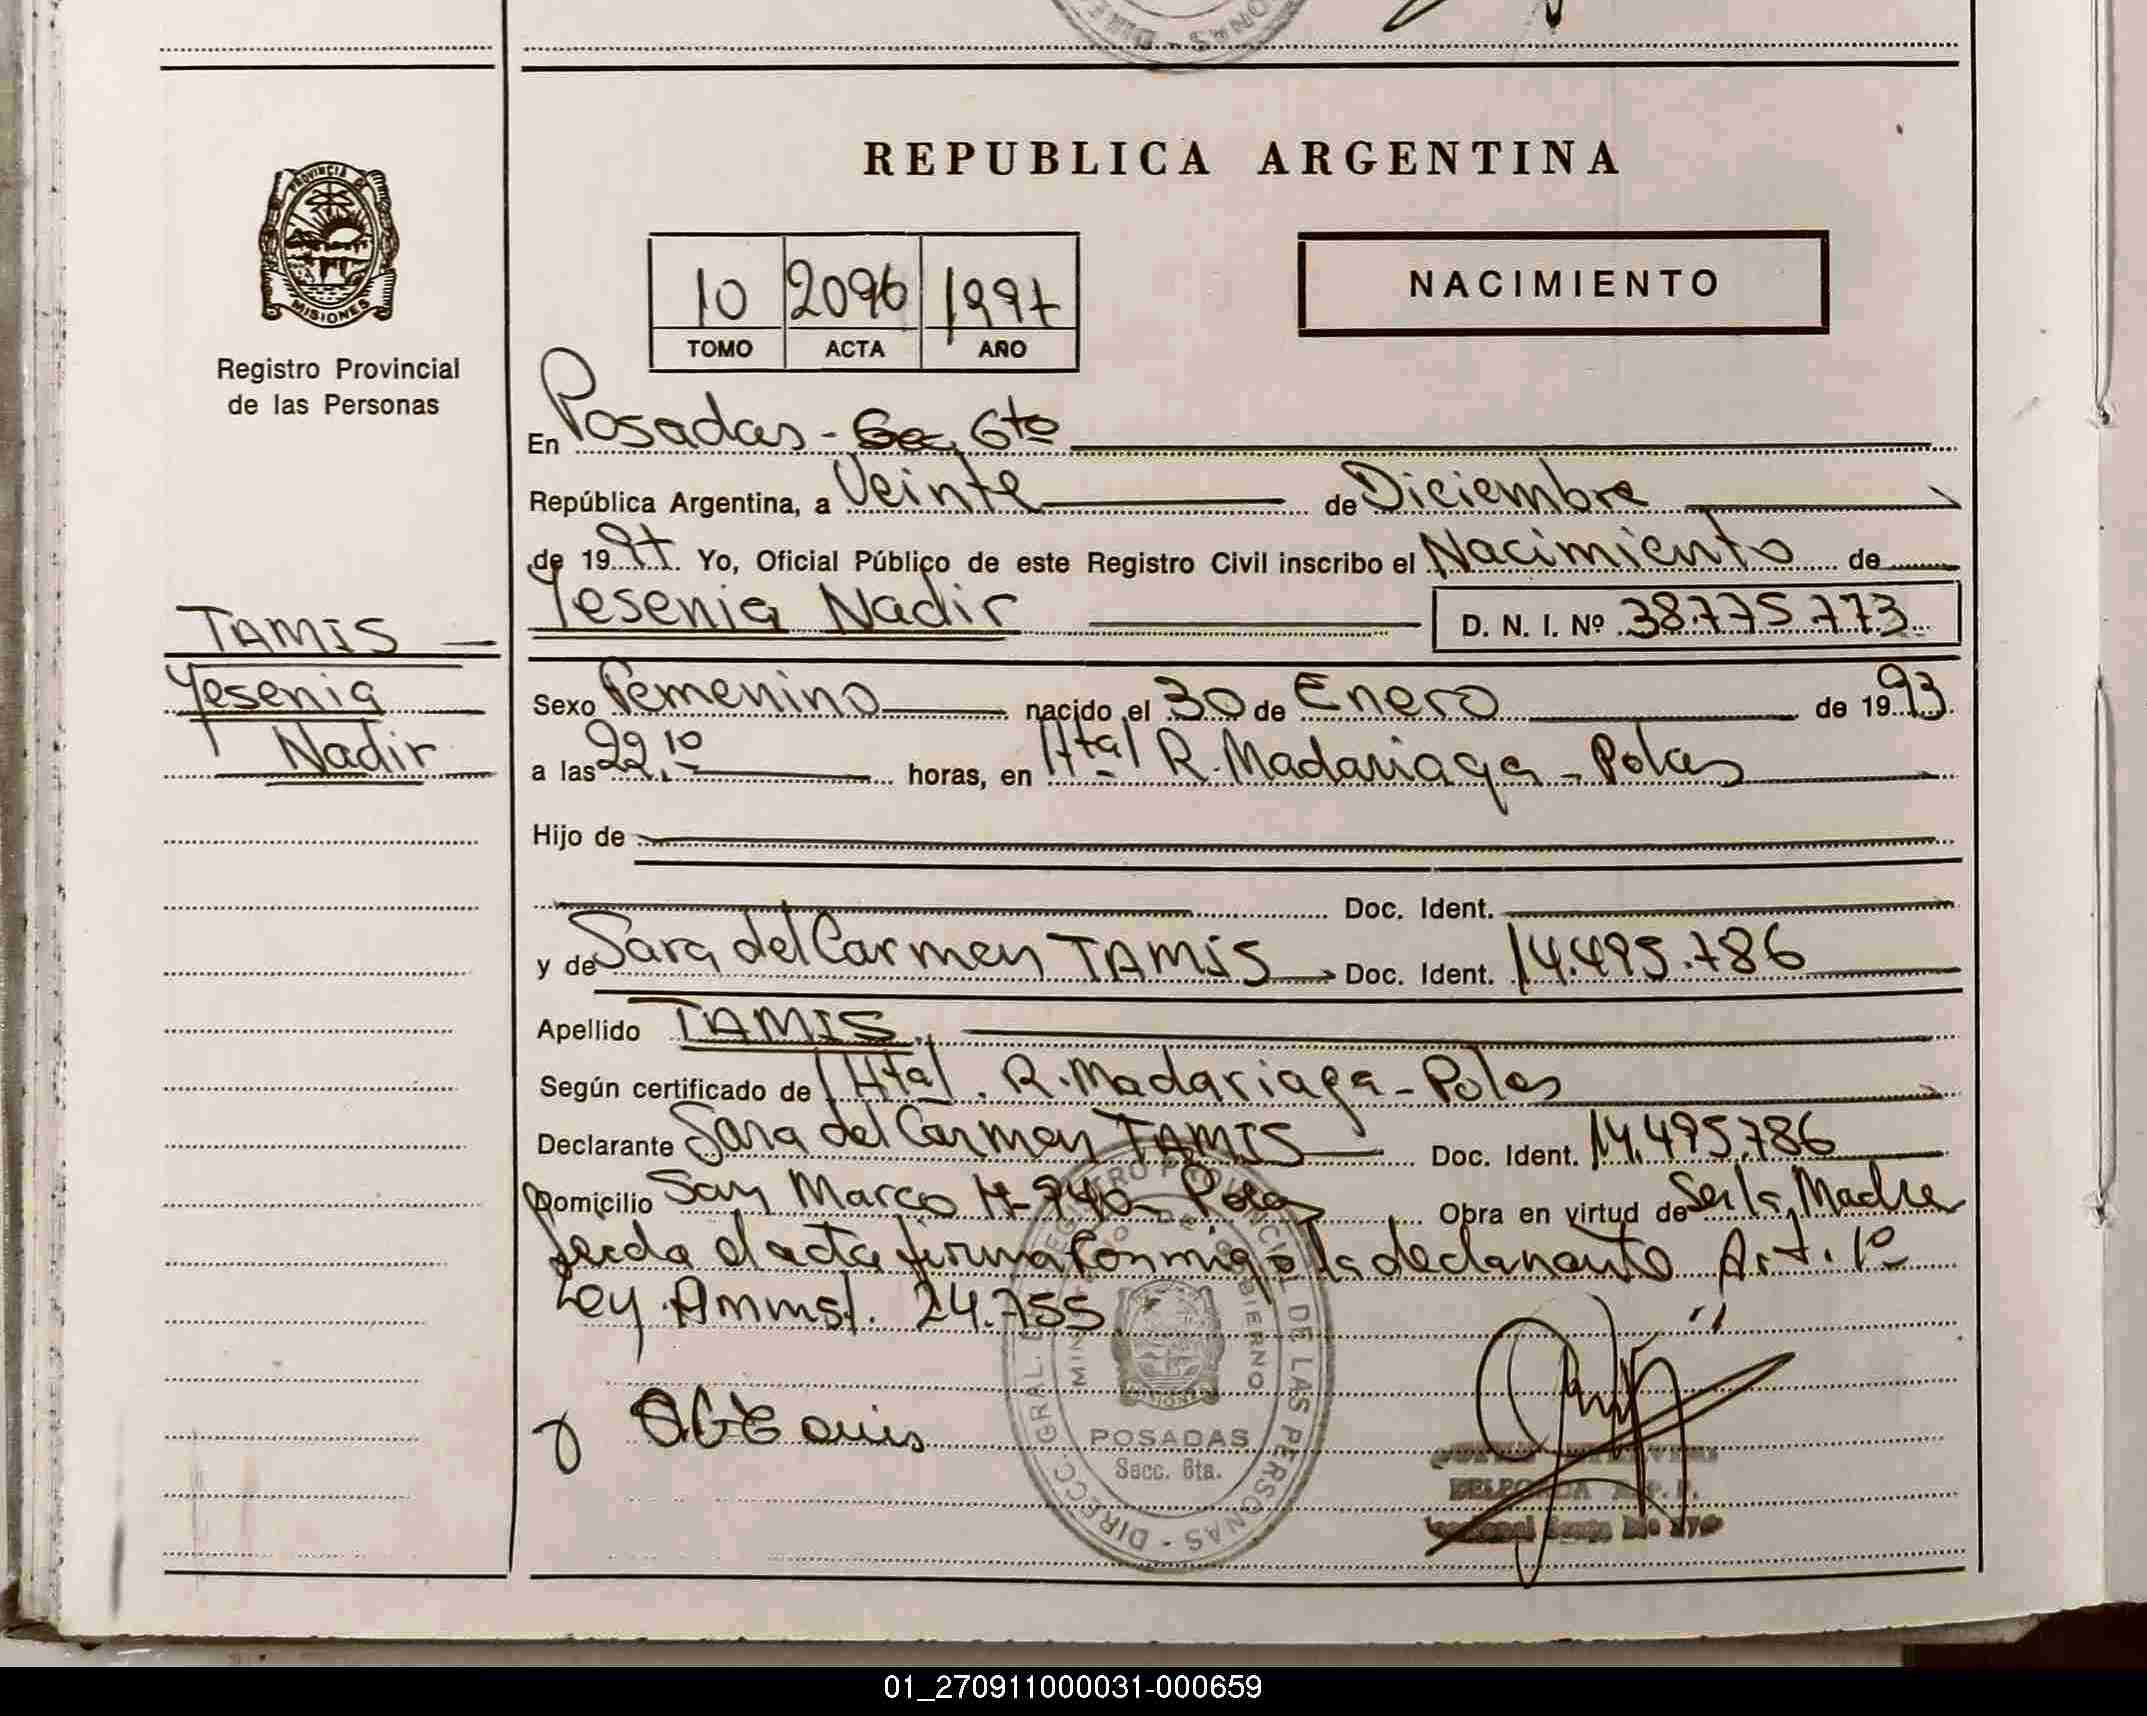 REPUBLICA ARGENTINA
PROVINCIA DE
MISIONES
Registro Provincial
de las Personas
10 2096 1997
TOMO ACTA AÑO
NACIMIENTO
En Posadas - Sec. 6ta
República Argentina, a Veinte de Diciembre
de 1997. Yo, Oficial Público de este Registro Civil inscribo el Nacimiento de
TAMIS
Yesenia
Nadir
Yesenia Nadir D. N. I. Nº 38.775.773
Sexo Femenino nacido el 30 de Enero de 1993.
a las 22,10 horas, en Htal R. Madariaga - Pdas
Hijo de
Doc. Ident.
y de Sara del Carmen TAMIS Doc. Ident. 14.495.786
Apellido TAMIS.
Según certificado de Htal. R. Madariaga - Pdas
Declarante Sara del Carmen TAMIS Doc. Ident. 14.495.786
Domicilio San Marco Nº 940 Pdas Obra en virtud de Ser la Madre
Leida el acta firma conmigo la declarante Art. 1º
Ley 24.755
DIRECC. GRAL. DEL REGISTRO PROVINCIAL DE LAS PERSONAS
GOBIERNO
POSADAS
Secc. 6ta.
01_270911000031-000659